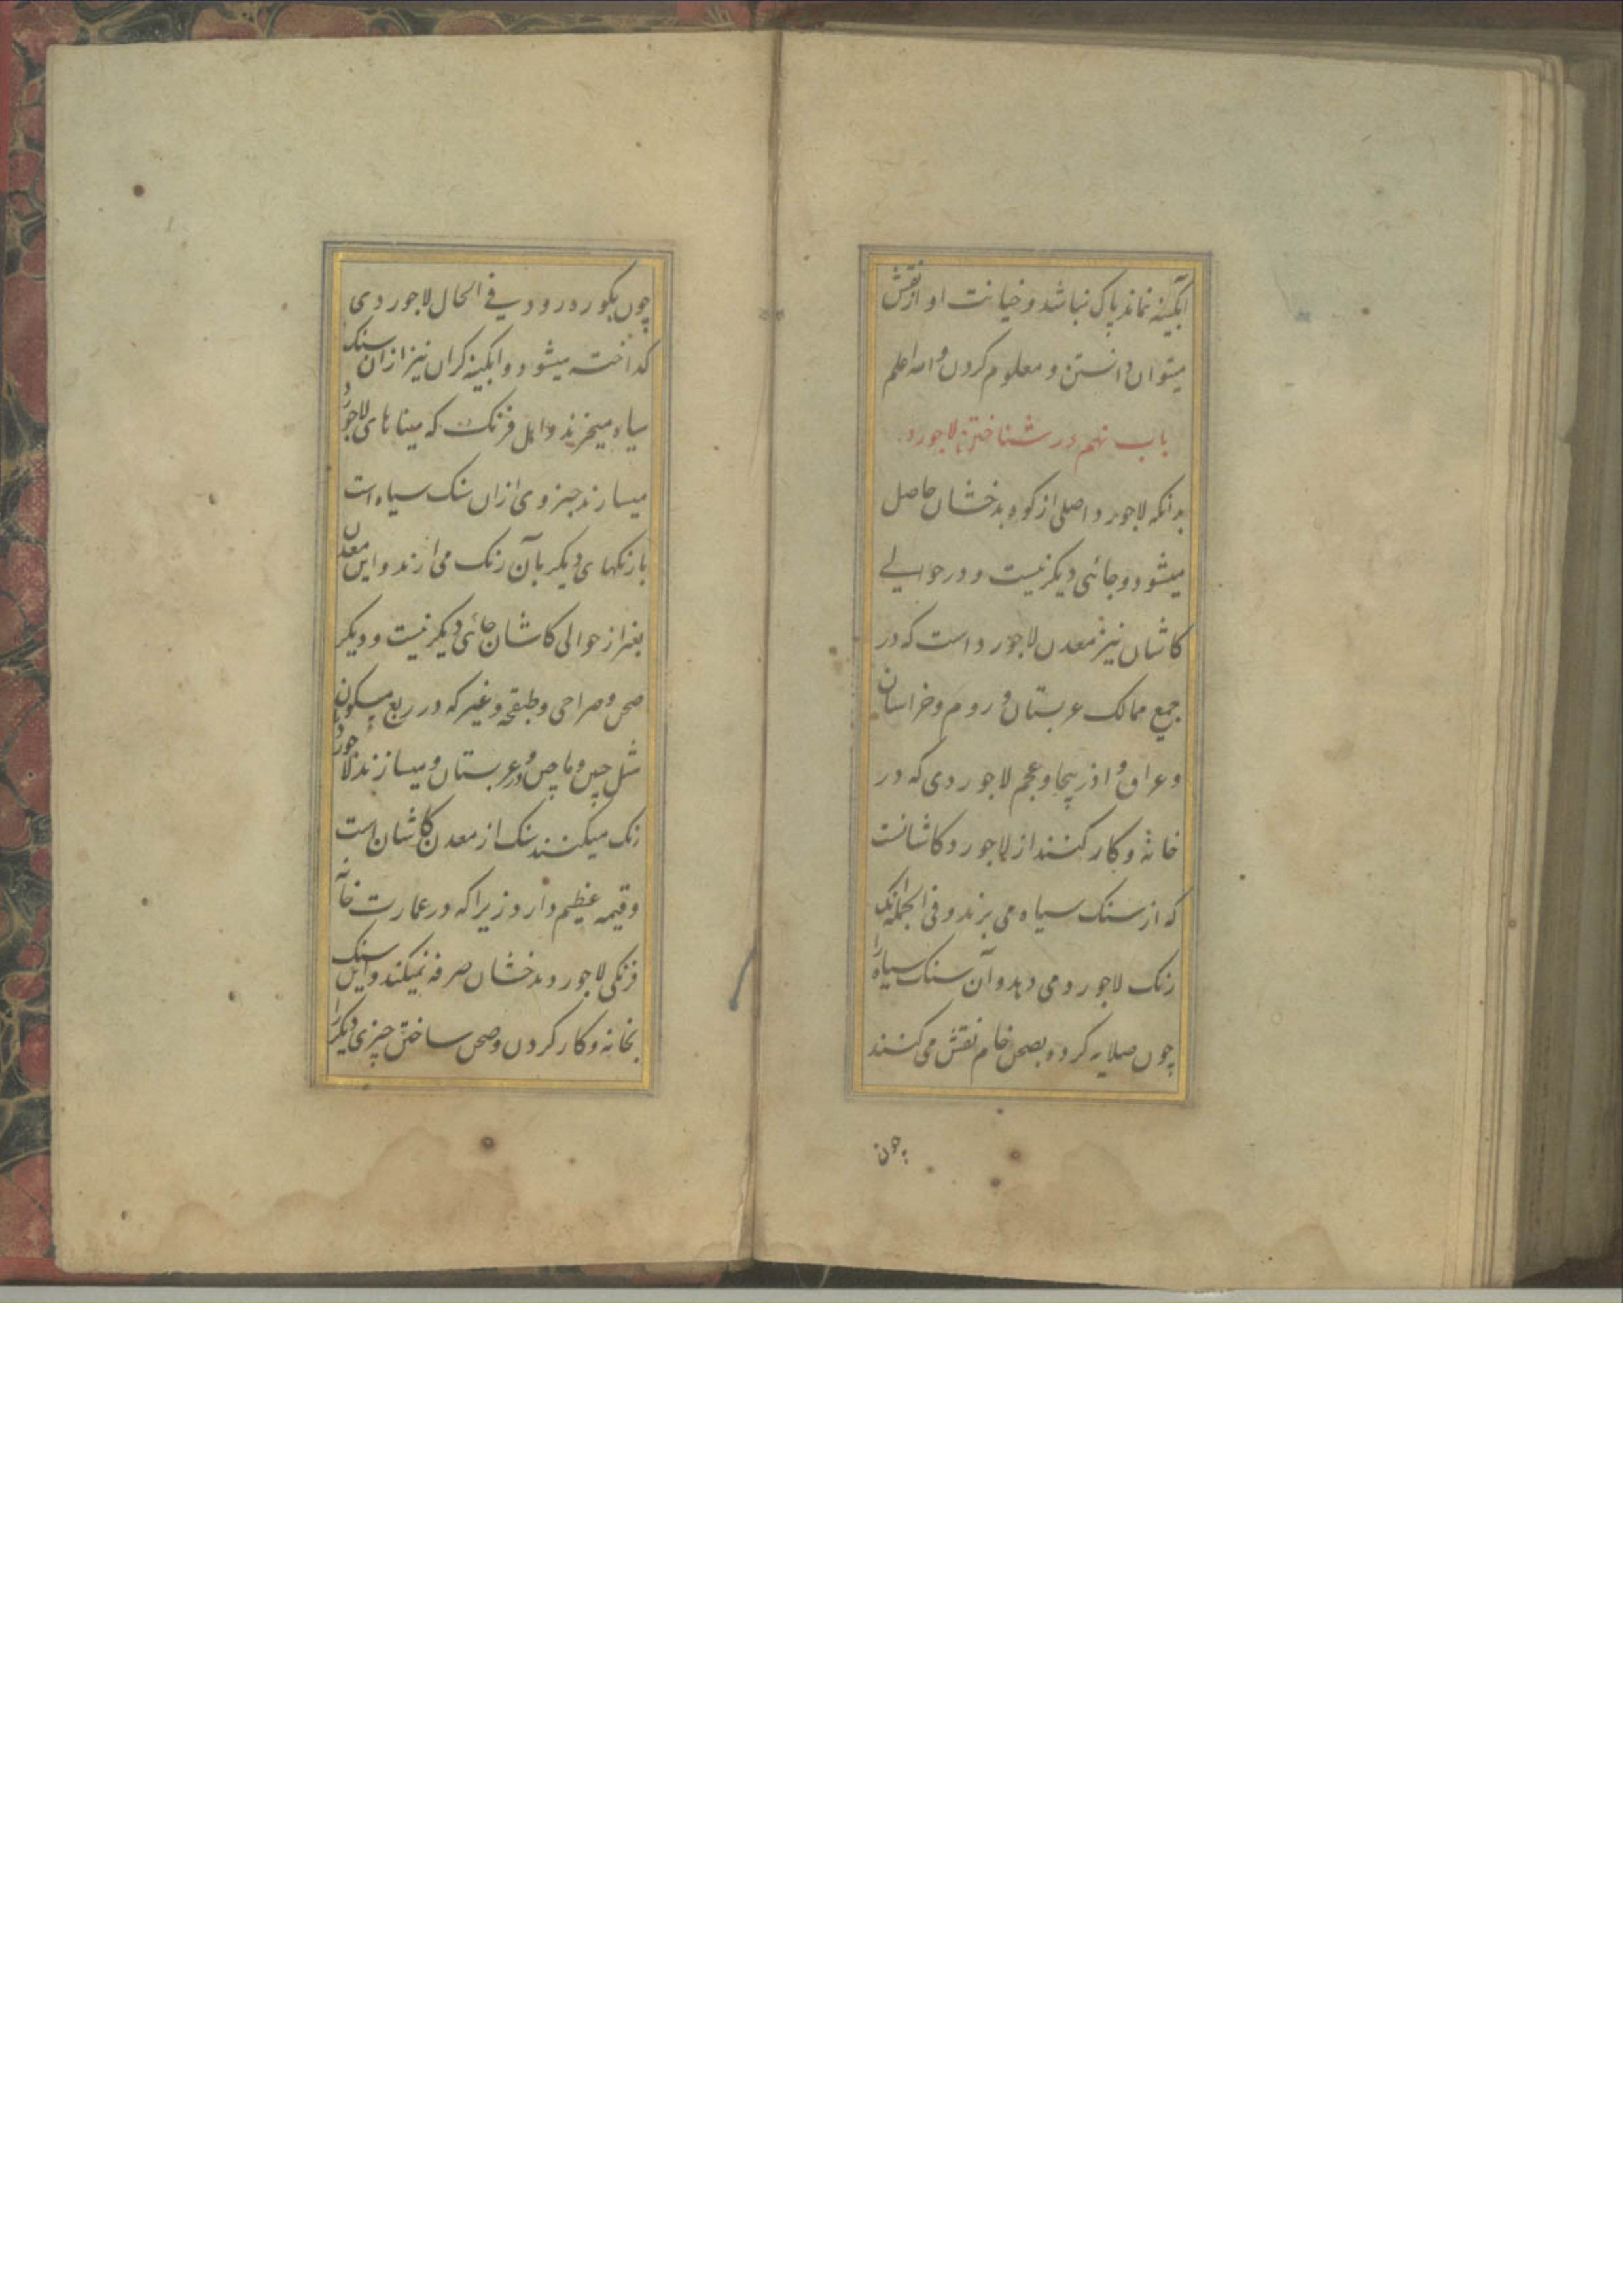 ابکینه نماند پاک نباشد و خیانت او از نقش
میتوان دانستن و معلوم کردن والله اعلم
باب نهم در شناختن لاجورد
بدانکه لاجورد اصلی از کوه بدخشان حاصل
میشود و جائی دیکر نیست و در حوالی
کاشان نیز معدن لاجورد است که در
جمیع ممالک عربستان و روم و خراسان
و عراق و اذربیجا و عجم لاجوردی که در
خانه و کار کنند از لاجورد کاشانست
که از سنک سیاه می پزند و فی الجمله انک
رنک لاجورد می دهد و آن سنک سیاه را
چون صلایه کرده بصحن خام نقش می کنند
چون
چون بکوره رود فی الحال لاجوردی
کداخته میشود و ابکینه کران نیز ازان سنک
سیاه میخرند و اهل فرنک که میناهای لاجورد
میسازند جزوی ازان سنک سیاه است
با رنکهای دیکر بآن رنک می ارند و این معدن
بغیر از حوالی کاشان جائی دیکر نیست و دیکر
صحن و صراحی و طبقچه و غیر که در ربع مسکون
مثل چین و ماچین و در عربستان و میسازند لاجورد
رنک میکنند سنک از معدن کاشان است
و قیمه عظیم دارد زیرا که در عمارت خانه
فرنکی لاجورد بدخشان صرفه نمیکند و این سنک
بخانه و کار کردن و صحن ساختن چیزی دیکر را